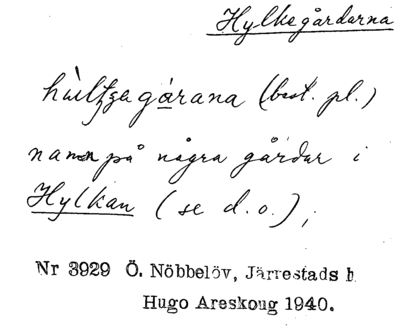 Hylkegårdarna
(best. pl.)
namn på några gårdar i
Hylkan (se d.o.);
Nr 3929 Ö. Nöbbelöv, Järrestads h
Hugo Areskoug 1940.